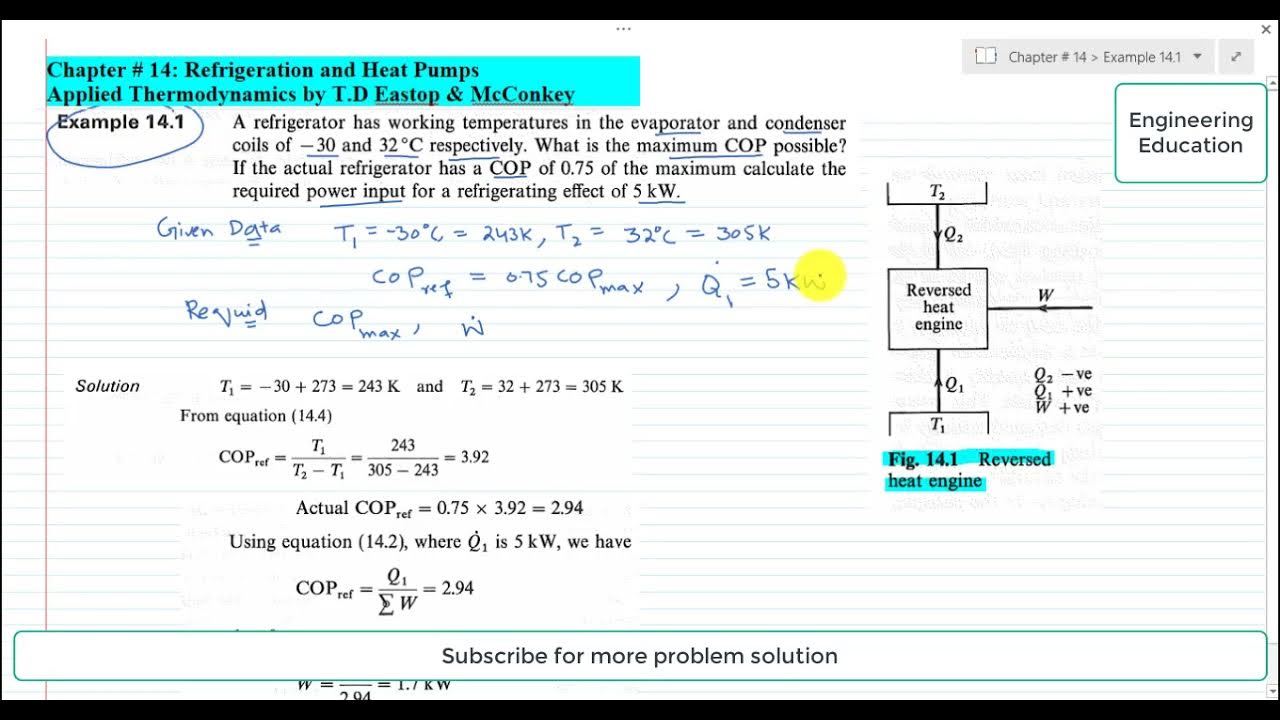 Chapter # 14 > Example 14.1
Chapter # 14: Refrigeration and Heat Pumps
Applied Thermodynamics by T.D Eastop & McConkey
Engineering
Education
Example 14.1
A refrigerator has working temperatures in the evaporator and condenser
coils of −30 and 32 °C respectively. What is the maximum COP possible?
If the actual refrigerator has a COP of 0.75 of the maximum calculate the
required power input for a refrigerating effect of 5 kW.
Given Data T₁ = -30°C = 243K, T₂ = 32°C = 305K
COP_ref = 0.75 COP_max, Q̇₁ = 5kW
Requid COP_max, Ẇ
T₂
Q₂
Reversed
heat
engine
W
Q₁
T₁
Q₂ −ve
Q₁ +ve
W +ve
Fig. 14.1 Reversed
heat engine
Solution T₁ = −30 + 273 = 243 K and T₂ = 32 + 273 = 305 K
From equation (14.4)
COP_ref = T₁ / (T₂ − T₁) = 243 / (305 − 243) = 3.92
Actual COP_ref = 0.75 × 3.92 = 2.94
Using equation (14.2), where Q̇₁ is 5 kW, we have
COP_ref = Q₁ / ∑ W = 2.94
Subscribe for more problem solution
W = 2.94 = 1.7 kW